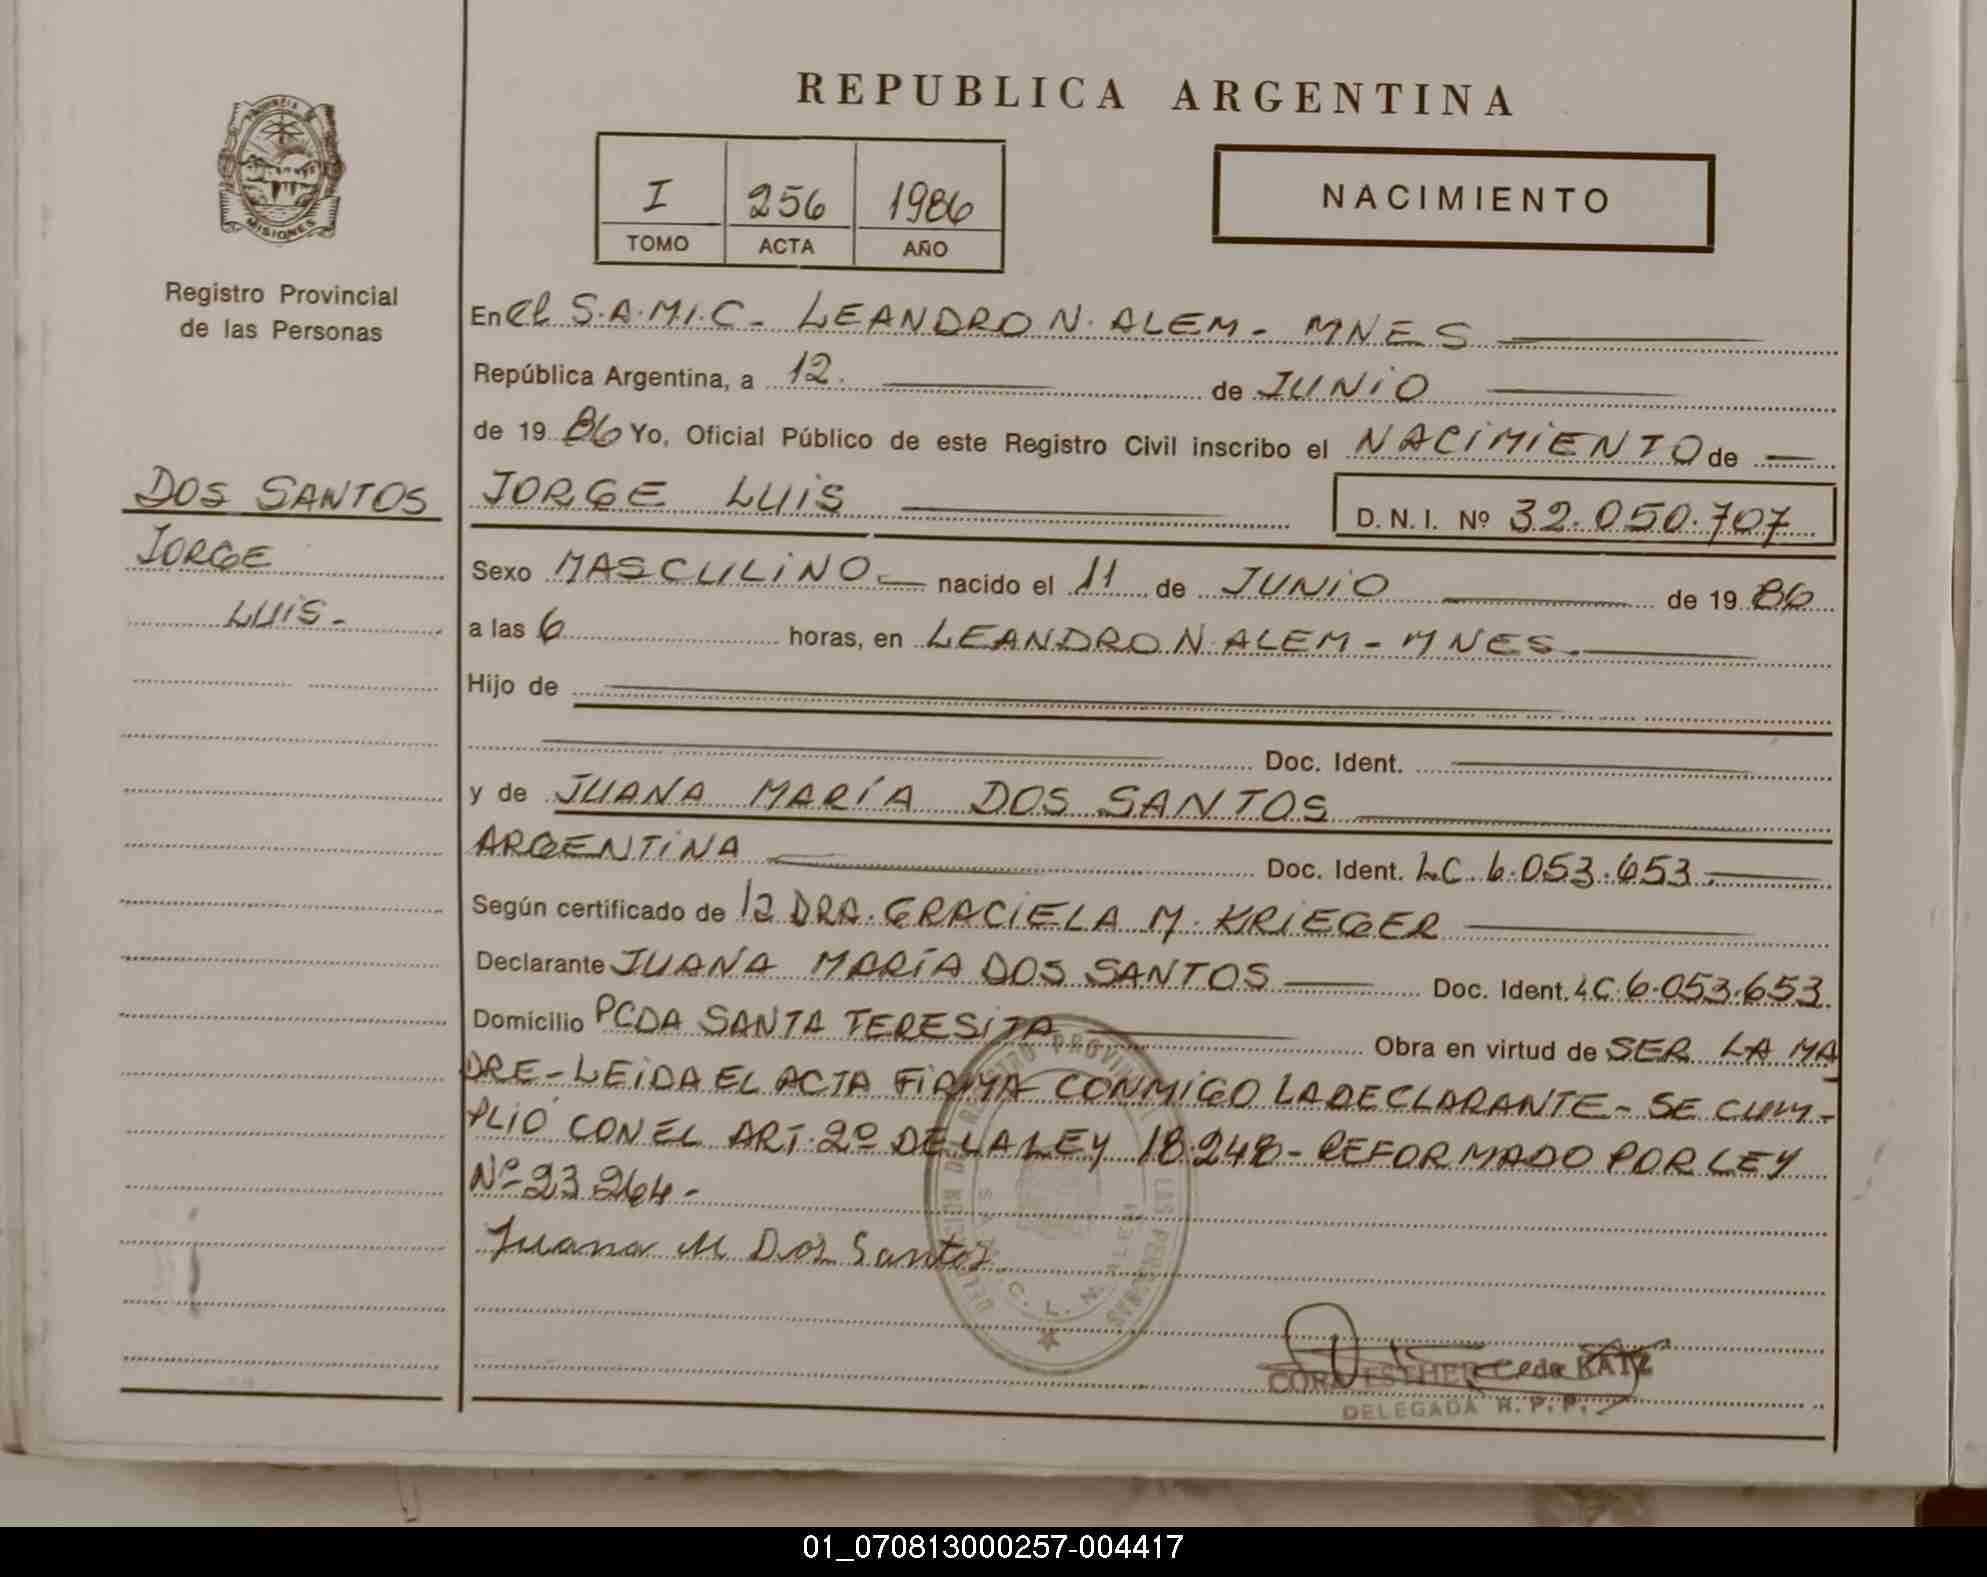 REPUBLICA ARGENTINA
PROVINCIA
MISIONES
Registro Provincial
de las Personas
I 256 1986
TOMO ACTA AÑO
NACIMIENTO
En el S.A.M.I.C. - LEANDRO N. ALEM - MNES
República Argentina, a 12. de JUNIO
de 19 86 Yo, Oficial Público de este Registro Civil inscribo el NACIMIENTO de
DOS SANTOS
JORGE
LUIS.-
JORGE LUIS D. N. I. Nº 32.050.707
Sexo MASCULINO nacido el 11 de JUNIO de 19 86
a las 6 horas, en LEANDRO N. ALEM - MNES.
Hijo de
Doc. Ident.
y de JUANA MARÍA DOS SANTOS
ARGENTINA Doc. Ident. LC 6.053.653.
Según certificado de la DRA. GRACIELA M. KRIEGER
Declarante JUANA MARÍA DOS SANTOS Doc. Ident. LC 6.053.653.
Domicilio PCDA SANTA TERESITA Obra en virtud de SER LA MA
DRE - LEIDA EL ACTA FIRMA CONMIGO LA DECLARANTE - SE CUM-
PLIÓ CON EL ART. 2º DE LA LEY 18.248 - REFORMADO POR LEY
Nº 23264 -
Juana M Dos Santos
REGISTRO PROVINCIAL LAS PERSONAS
CORA ESTHER Ceda KATZ
DELEGADA R. P. P.
01_070813000257-004417